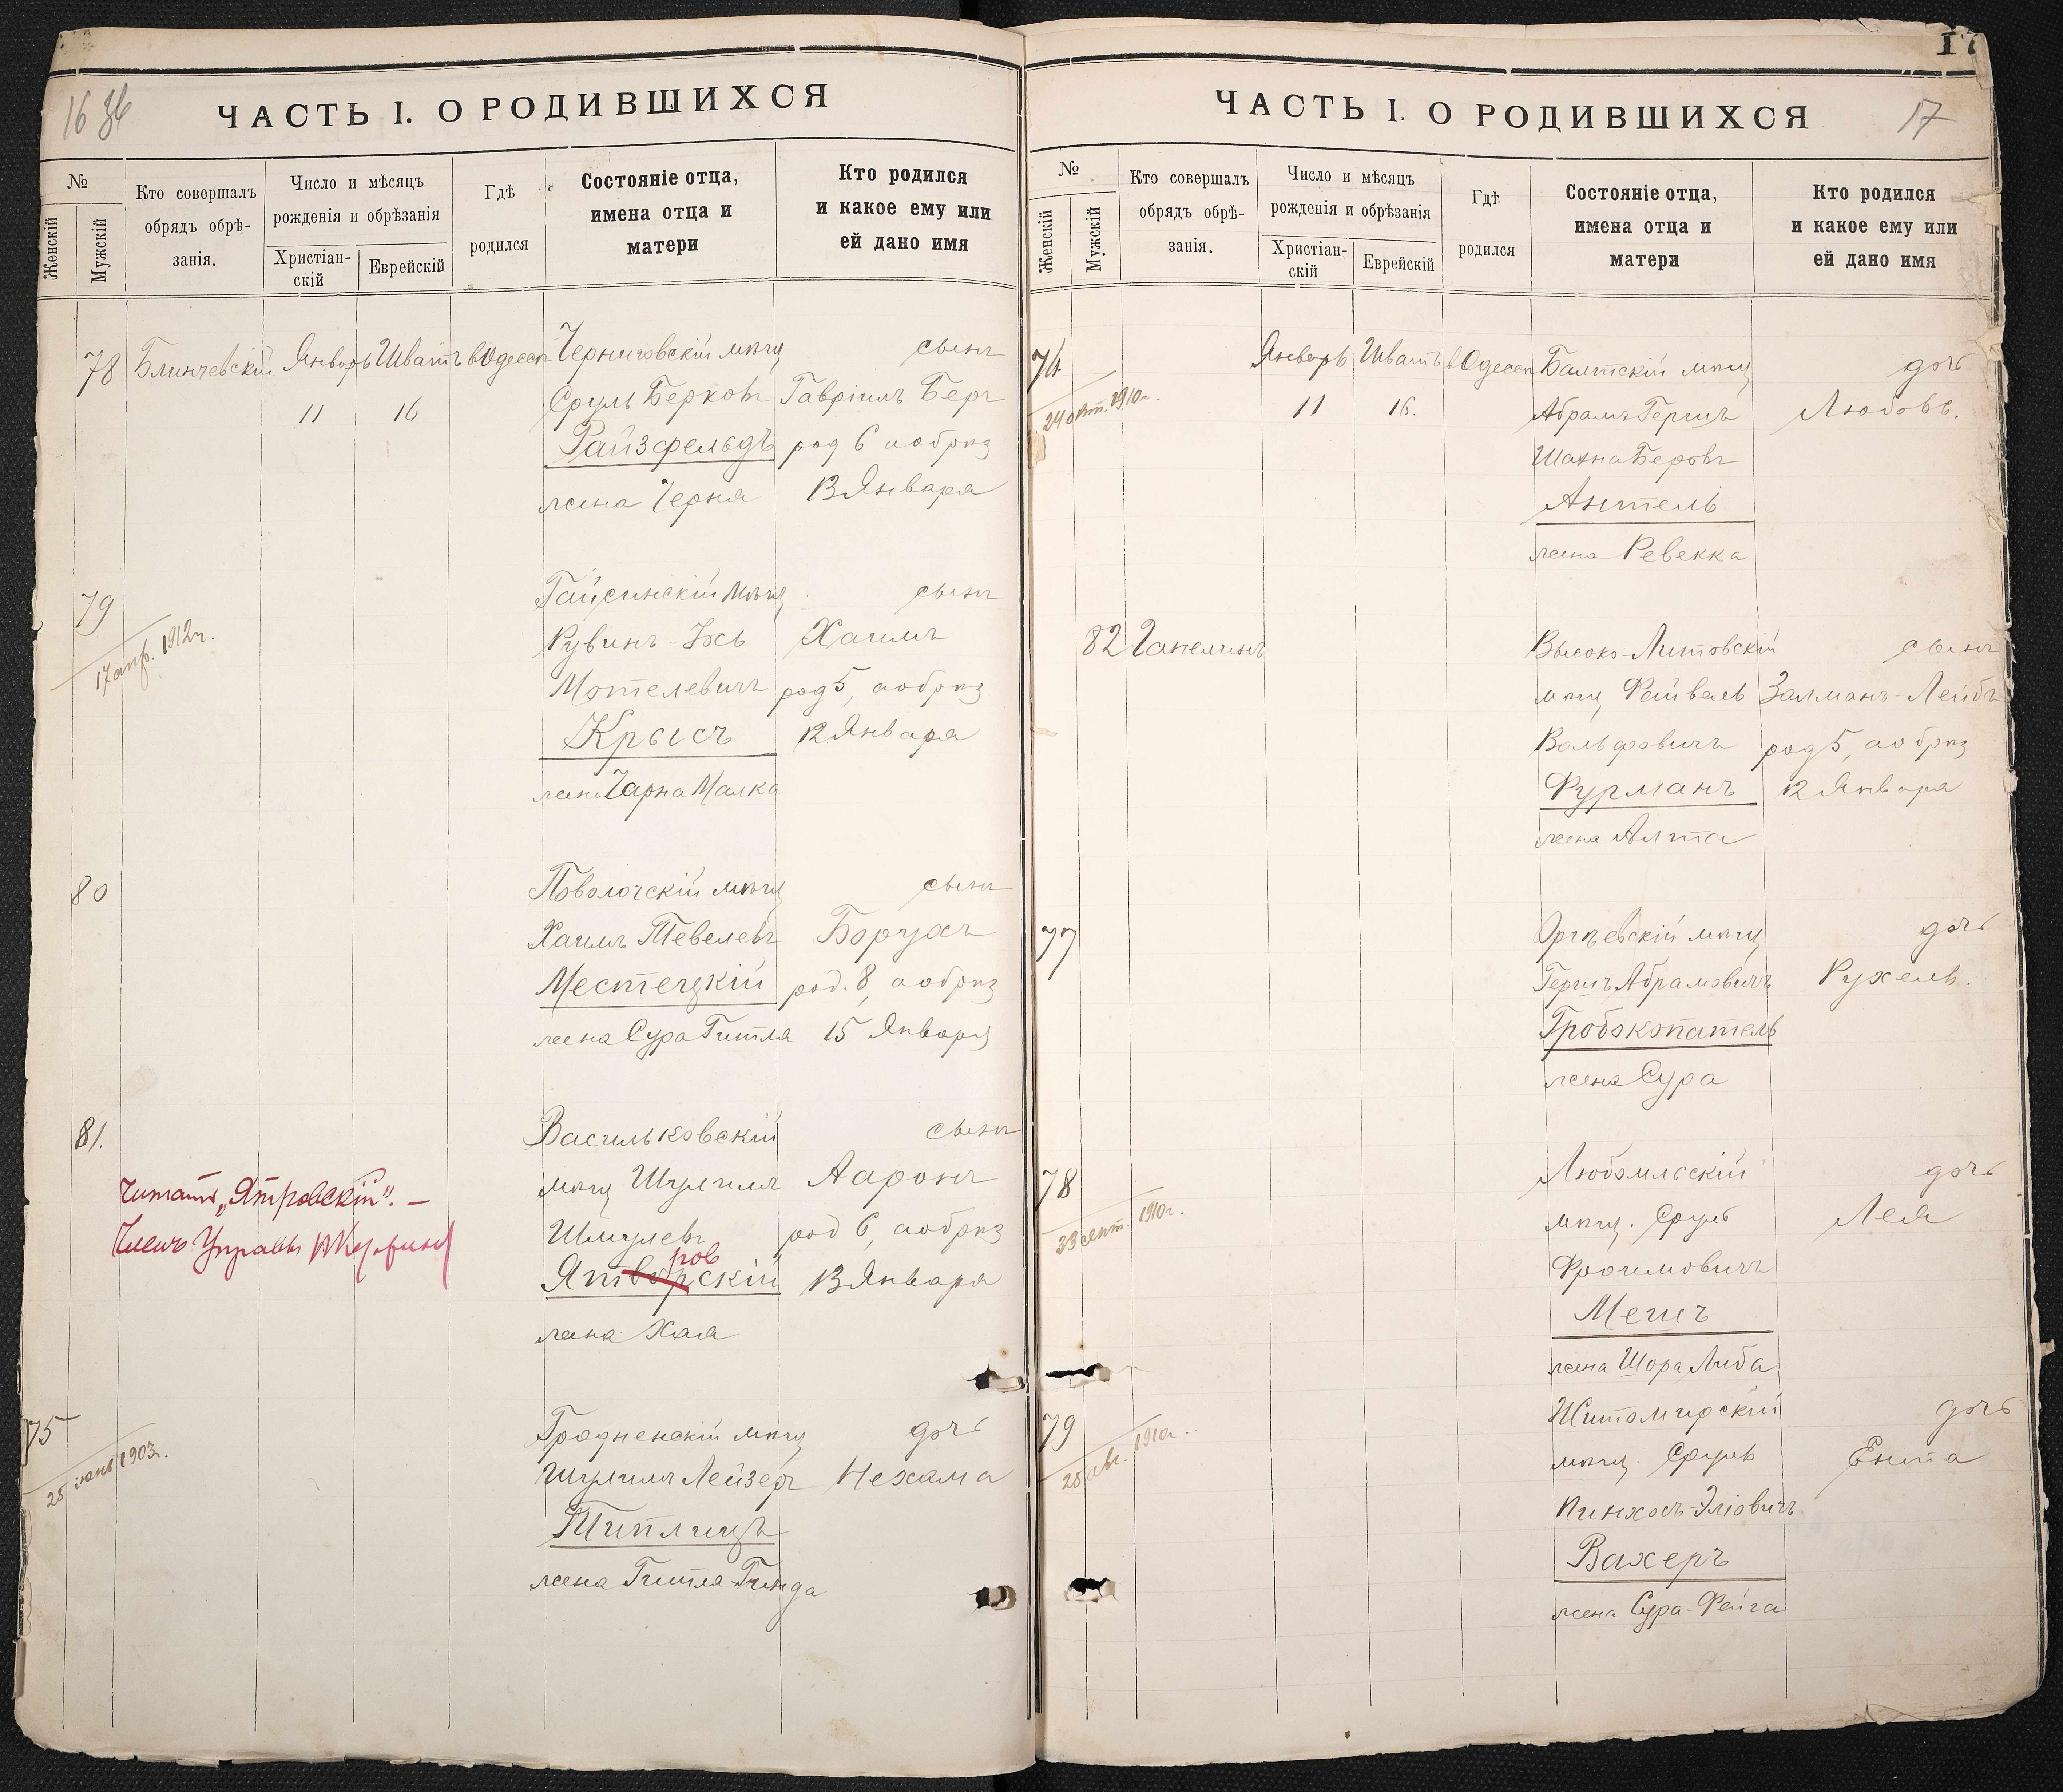 16 об
ЧАСТЬ I. О РОДИВШИХСЯ
№
Женскій
Мужскій
Кто совершалъ
обрядъ обрѣ-
занія.
Число и мѣсяцъ
рожденія и обрѣзанія
Христіан-
скій
Еврейскій
Гдѣ
родился
Состояніе отца,
имена отца и
матери
Кто родился
и какое ему или
ей дано имя
78 Блинчевскій Январь Шватъ въ Одессѣ Черниговскій мѣщ сынъ
11 16 Сруль Берковъ Гавріилъ Беръ
Райзфельдъ род 6 а обрѣз
жена Черня 13 Января
79 Гайсинскій мѣщ сынъ
17 апр. 1912 г. Рувинъ-Іось Хаимъ
Мотелевичъ род 5, а обрѣз
Крысъ 12 Января
жена Чарна Малка
80 Поволочскій мѣщ сынъ
Хаимъ Тевелевъ Борухъ
Местечкій род. 8, а обрѣз
жена Сура Гитля 15 Января
81. Васильковскій сынъ
Читать „Ятровскій". —
мѣщ Шулимъ Ааронъ
Членъ Управы
Шмулевъ род 6, а обрѣз
ров
Ятворскій 13 Января
жена Хая
75 Гродненскій мѣщ дочь
28 іюнь 1903 г. Шулимъ Лейзеръ Нехама
Типлицъ
жена Гитля-Гинда
17
ЧАСТЬ I. О РОДИВШИХСЯ
17
№
Женскій
Мужскій
Кто совершалъ
обрядъ обрѣ-
занія.
Число и мѣсяцъ
рожденія и обрѣзанія
Христіан-
скій
Еврейскій
Гдѣ
родился
Состояніе отца,
имена отца и
матери
Кто родился
и какое ему или
ей дано имя
Январь Шватъ въ Одессѣ Балтскій мѣщ дочь
24 окт. 1910 г. 11 16. Абрамъ Гершъ Любовь.
Шахна Беровъ
Антель
жена Ревекка
82 Чапелинъ Высоко-Литовскій сынъ
мѣщ Файвель Залманъ-Лейбъ
Вольфовичъ род 5, а обрѣз
Фурманъ 12 Января
жена Алта
77 Оргѣевскій мѣщ дочь
Гершъ Абрамовичъ Рухель.
Гробокопатель
жена Сура
78 Любомльскій дочь
23 сент. 1910 г. мѣщ. Сруль Лея
Фроимовичъ
Мешъ
жена Шора Либа
79 Житомирскій дочь
28 авг. 1910 г. мѣщ. Сруль Ента
Пинхосъ-Эліовичъ
Вахеръ
жена Сура-Фейга